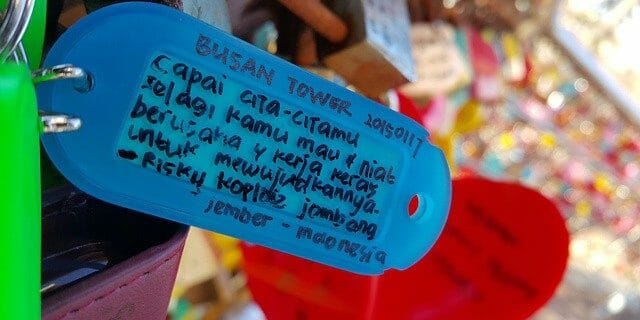 BUSAN TOWER 20150117
Capai cita-citamu
selagi kamu mau & niat
berusaha & kerja keras
untuk mewujudkannya.
- Risky koplak jombang
Jember - Indonesia